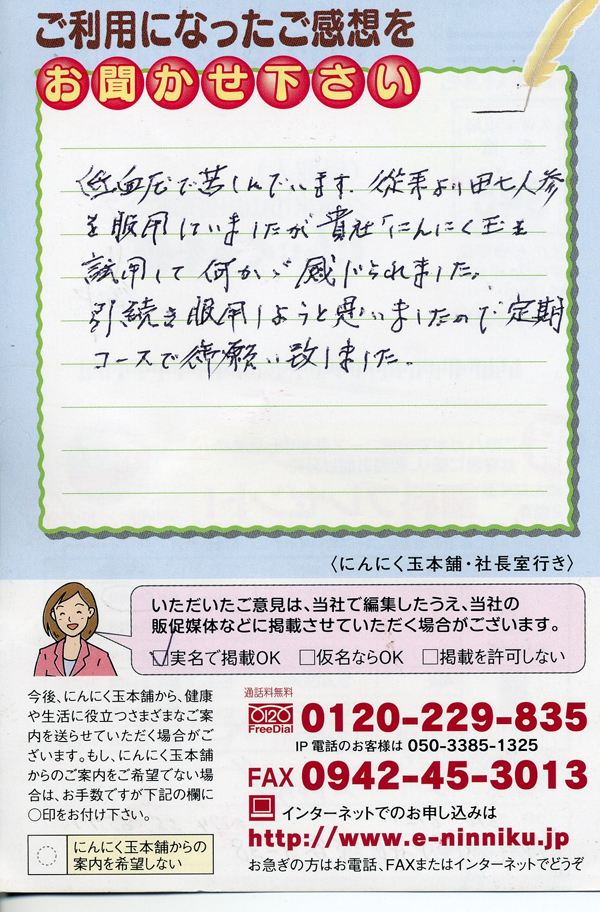 ご利用になったご感想を
お聞かせ下さい
低血圧で苦しんでいます。従来より田七人参
を服用していましたが貴社「にんにく玉を
試用して何かゞ感じられました。
引続き服用しようと思いましたので定期
コースで御願い致しました。
〈にんにく玉本舗・社長室行き〉
いただいたご意見は、当社で編集したうえ、当社の
販促媒体などに掲載させていただく場合がございます。
☑実名で掲載OK □仮名ならOK □掲載を許可しない
今後、にんにく玉本舗から、健康
や生活に役立つさまざまなご案
内を送らせていただく場合がご
ざいます。もし、にんにく玉本舗
からのご案内をご希望でない場
合は、お手数ですが下記の欄に
○印をお付け下さい。
にんにく玉本舗からの
案内を希望しない
通話料無料
0120
FreeDial
0120-229-835
IP電話のお客様は 050-3385-1325
FAX 0942-45-3013
インターネットでのお申し込みは
http://www.e-ninniku.jp
お急ぎの方はお電話、FAXまたはインターネットでどうぞ